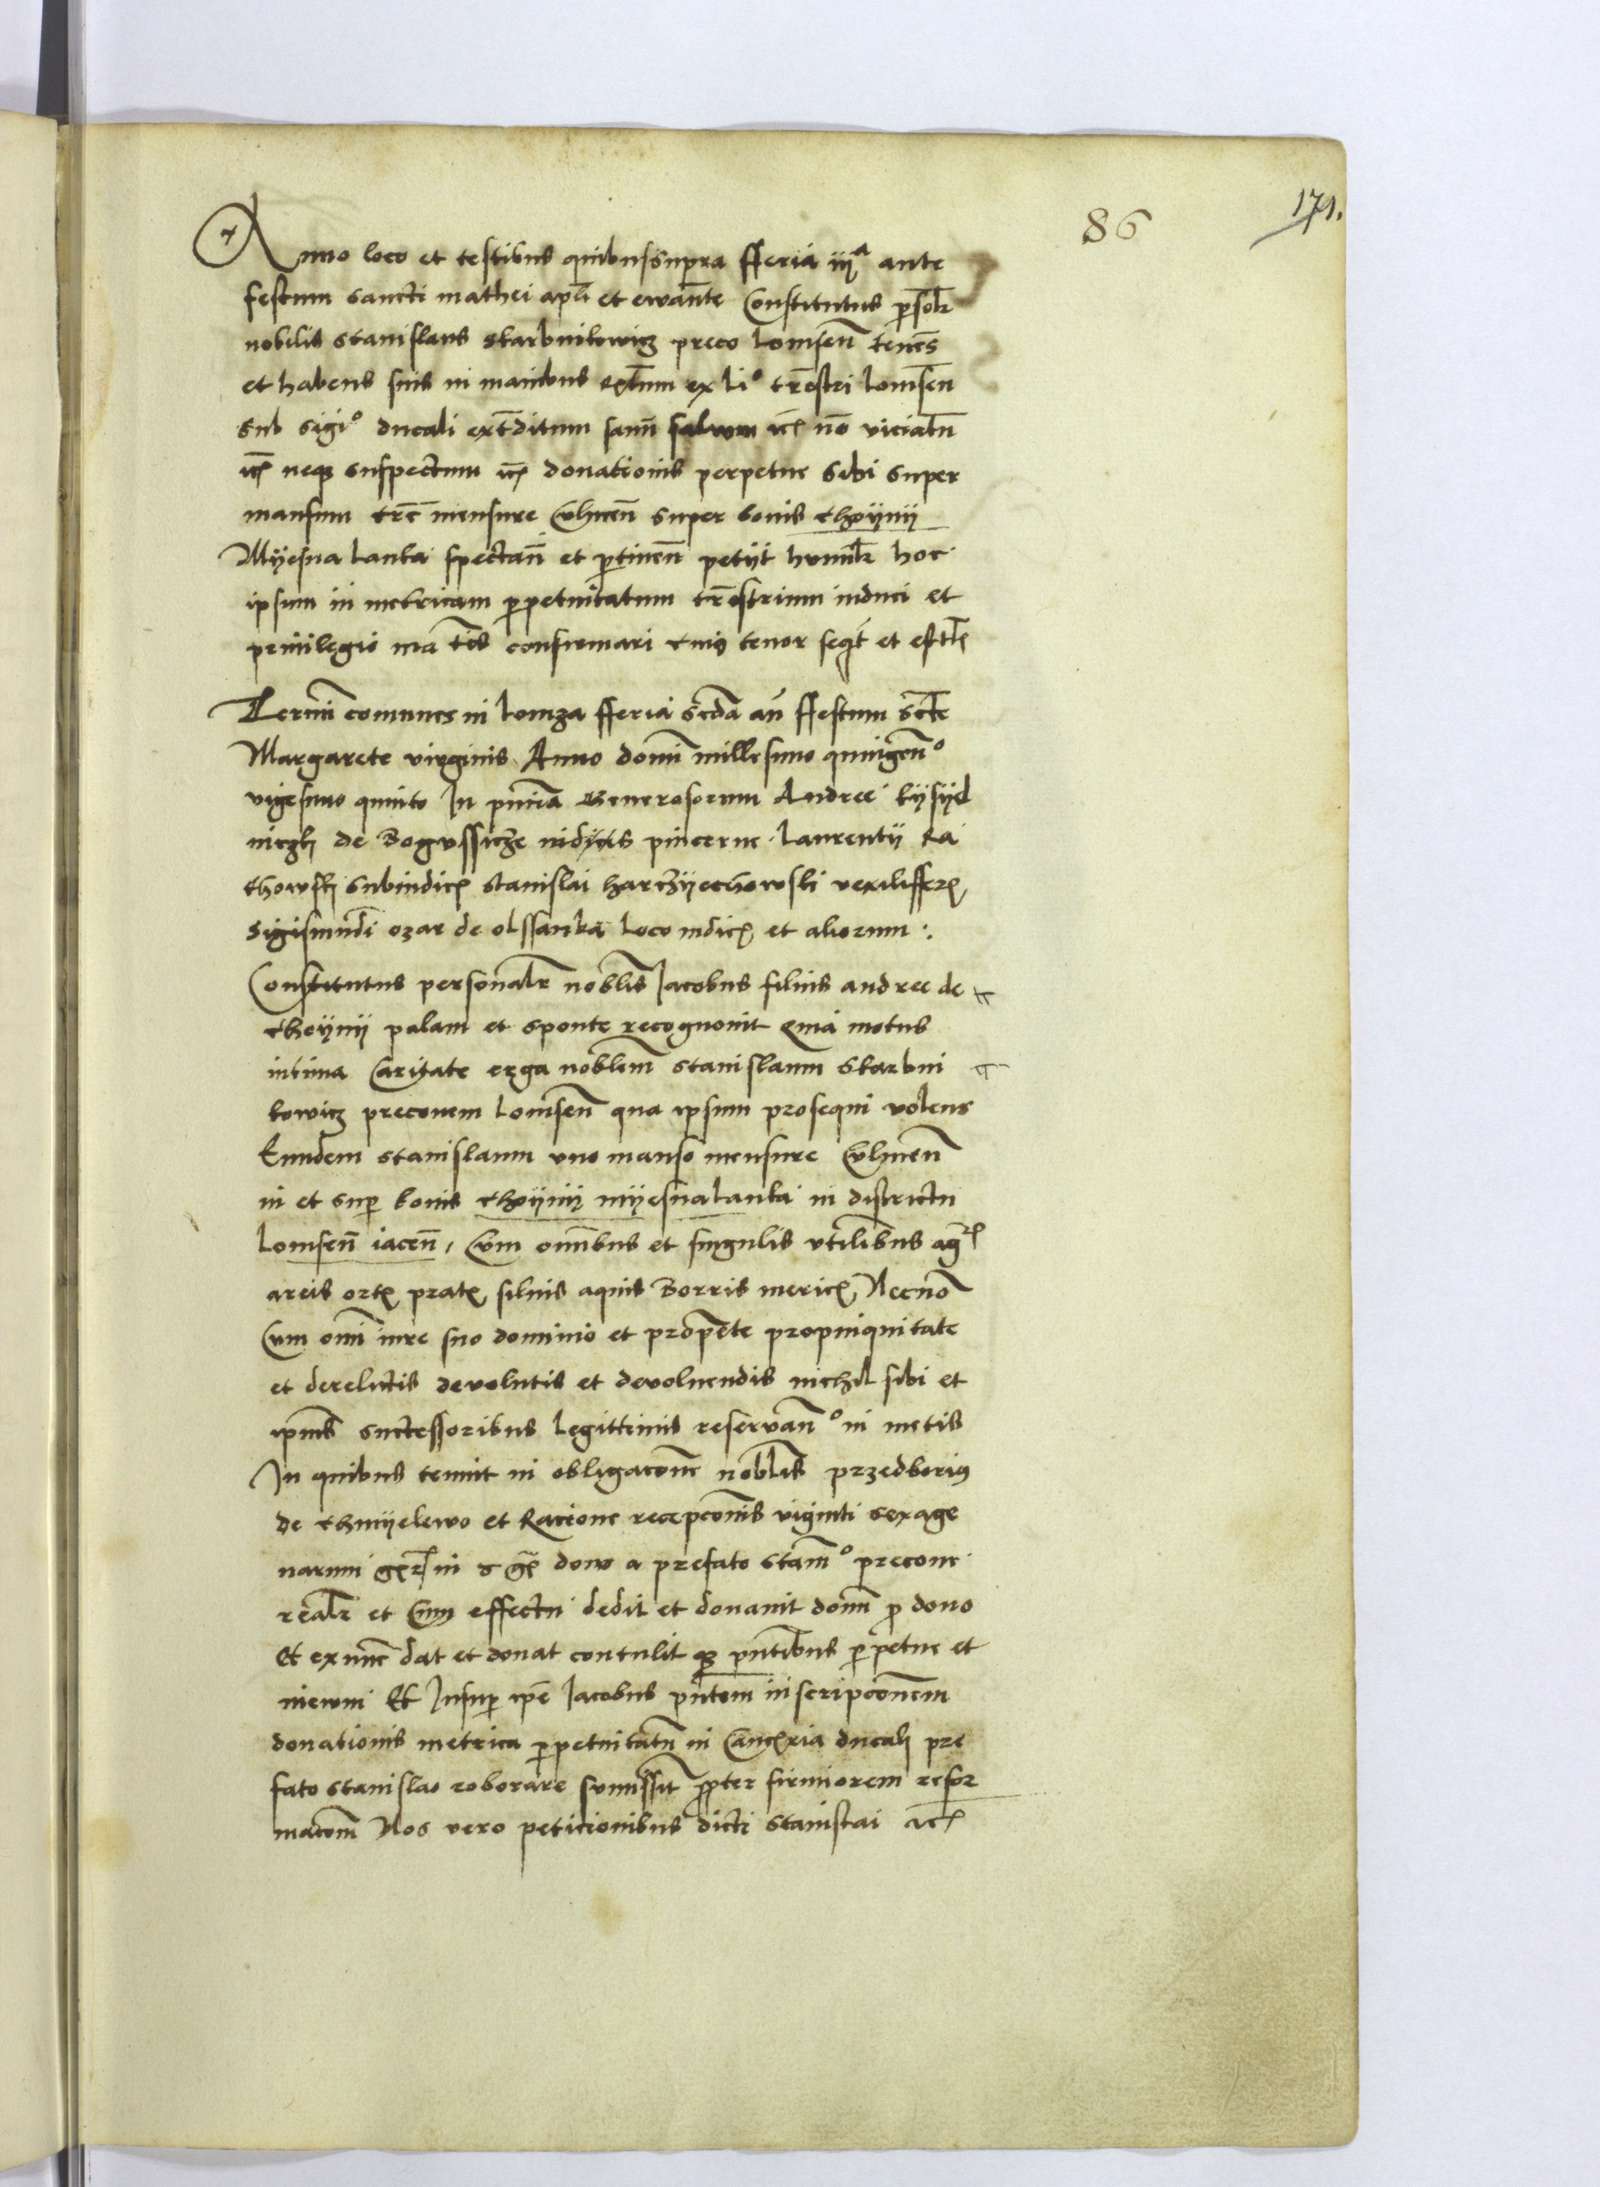 86
171.
Anno loco et testibus quibussupra fferia iija ante
festum sancti mathei apli et ewante Constitutus psolr
nobilis Stanislaus Skarbnikowicz preco Lomsen tenens
et habens suis in manibus ex li° trestri Lomsen
sub sigi° ducali extditum sanum salwum no viciatu
neque suspectum donationis perpetue sibi super
mansum tre mensure Culmen super bonis Choynij
Myesna Lanka spectan et ptinen petijt humilr hoc
ipsum in metricam ppetuitatum trestrium induci et
priuilegio confirmari cuius tenor sequit et est tlis
Termi comunes in Lomza fferia scda an ffestum scte
Margarete virginis Anno domi millesimo quingen°
vigesimo quinto In pncia Generosorum Andree
de Bogussicze pincerne Laurentij Ra
khowski subiudicis Stanislai vexilifferi
Sigismundi Ozar de Olssanka loco iudicis et aliorum
Constitutus personalr noblis Jacobus filius andree de
Choynij palam et sponte recognouit Quia motus
intima Caritate erga noblem Stanislaum Skarbni
kowicz preconem Lomsen qua ipsum prosequi volens
Eundem Stanislaum vno manso mensure Culmen
in et sup bonis Choynij myesnalanka in districtu
Lomsen iacen, Cum omnibus et singulis vtilibus agris
areis ortis pratis siluis aquis Borris mericis Necno
Cum omi iure suo dominio et propinquitate
et derelictis devolutis et devoluendis nichil sibi et
ipius successoribus legittimis reservan° in metis
In quibus tenuit in obligacone noblis Przedborius
de Chmyelewo et Racione recepconis viginti sexage
narum in a prefato Stani° precone
realr et Cum effectu dedit et donauit pro dono
Et ex nunc dat et donat contulit pntibus ppetue et
in ewm Et Insup ipe Jacobus pntem inscripconem
donationis metrica ppetuitatu in Cancria ducali pre
fato Stanislao roborare summisit ppter firmiorem refor
macom Nos vero peticionibus dicti Stanislai